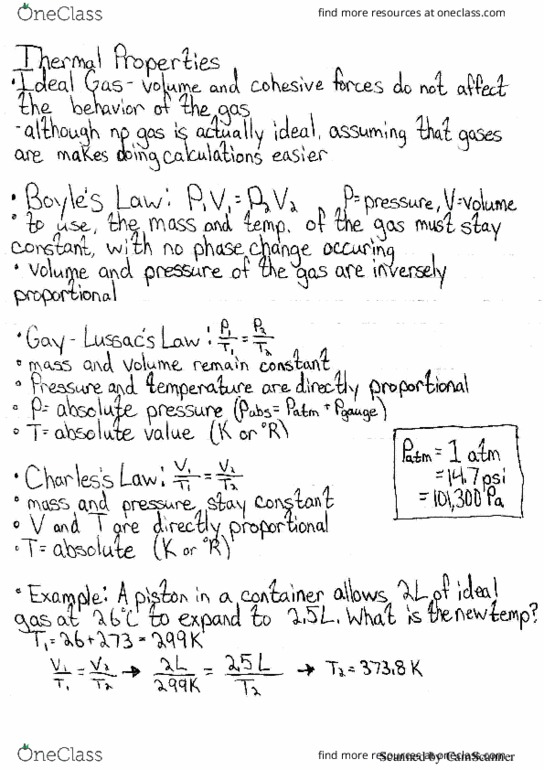 OneClass
find more resources at oneclass.com
Thermal Properties
• Ideal Gas - volume and cohesive forces do not affect
the behavior of the gas
- although no gas is actually ideal, assuming that gases
are makes doing calculations easier
• Boyle's Law: P₁V₁ = P₂V₂ P=pressure, V=volume
• to use, the mass and temp. of the gas must stay
constant, with no phase change occuring
• volume and pressure of the gas are inversely
proportional
• Gay-Lussac's Law: P₁/T₁ = P₂/T₂
• mass and volume remain constant
• Pressure and temperature are directly proportional
• P= absolute pressure (Pabs = Patm + Pgauge)
• T= absolute value (K or °R)
Patm = 1 atm
= 14.7 psi
= 101,300 Pa
• Charles's Law: V₁/T₁ = V₂/T₂
• mass and pressure stay constant
• V and T are directly proportional
• T= absolute (K or °R)
• Example: A piston in a container allows 2L of ideal
gas at 26°C to expand to 2.5L. What is the new temp?
T₁ = 26 + 273 = 299K
V₁/T₁ = V₂/T₂ → 2L/299K = 2.5L/T₂ → T₂ = 373.8 K
OneClass
find more resources at oneclass.com
Scanned by CamScanner